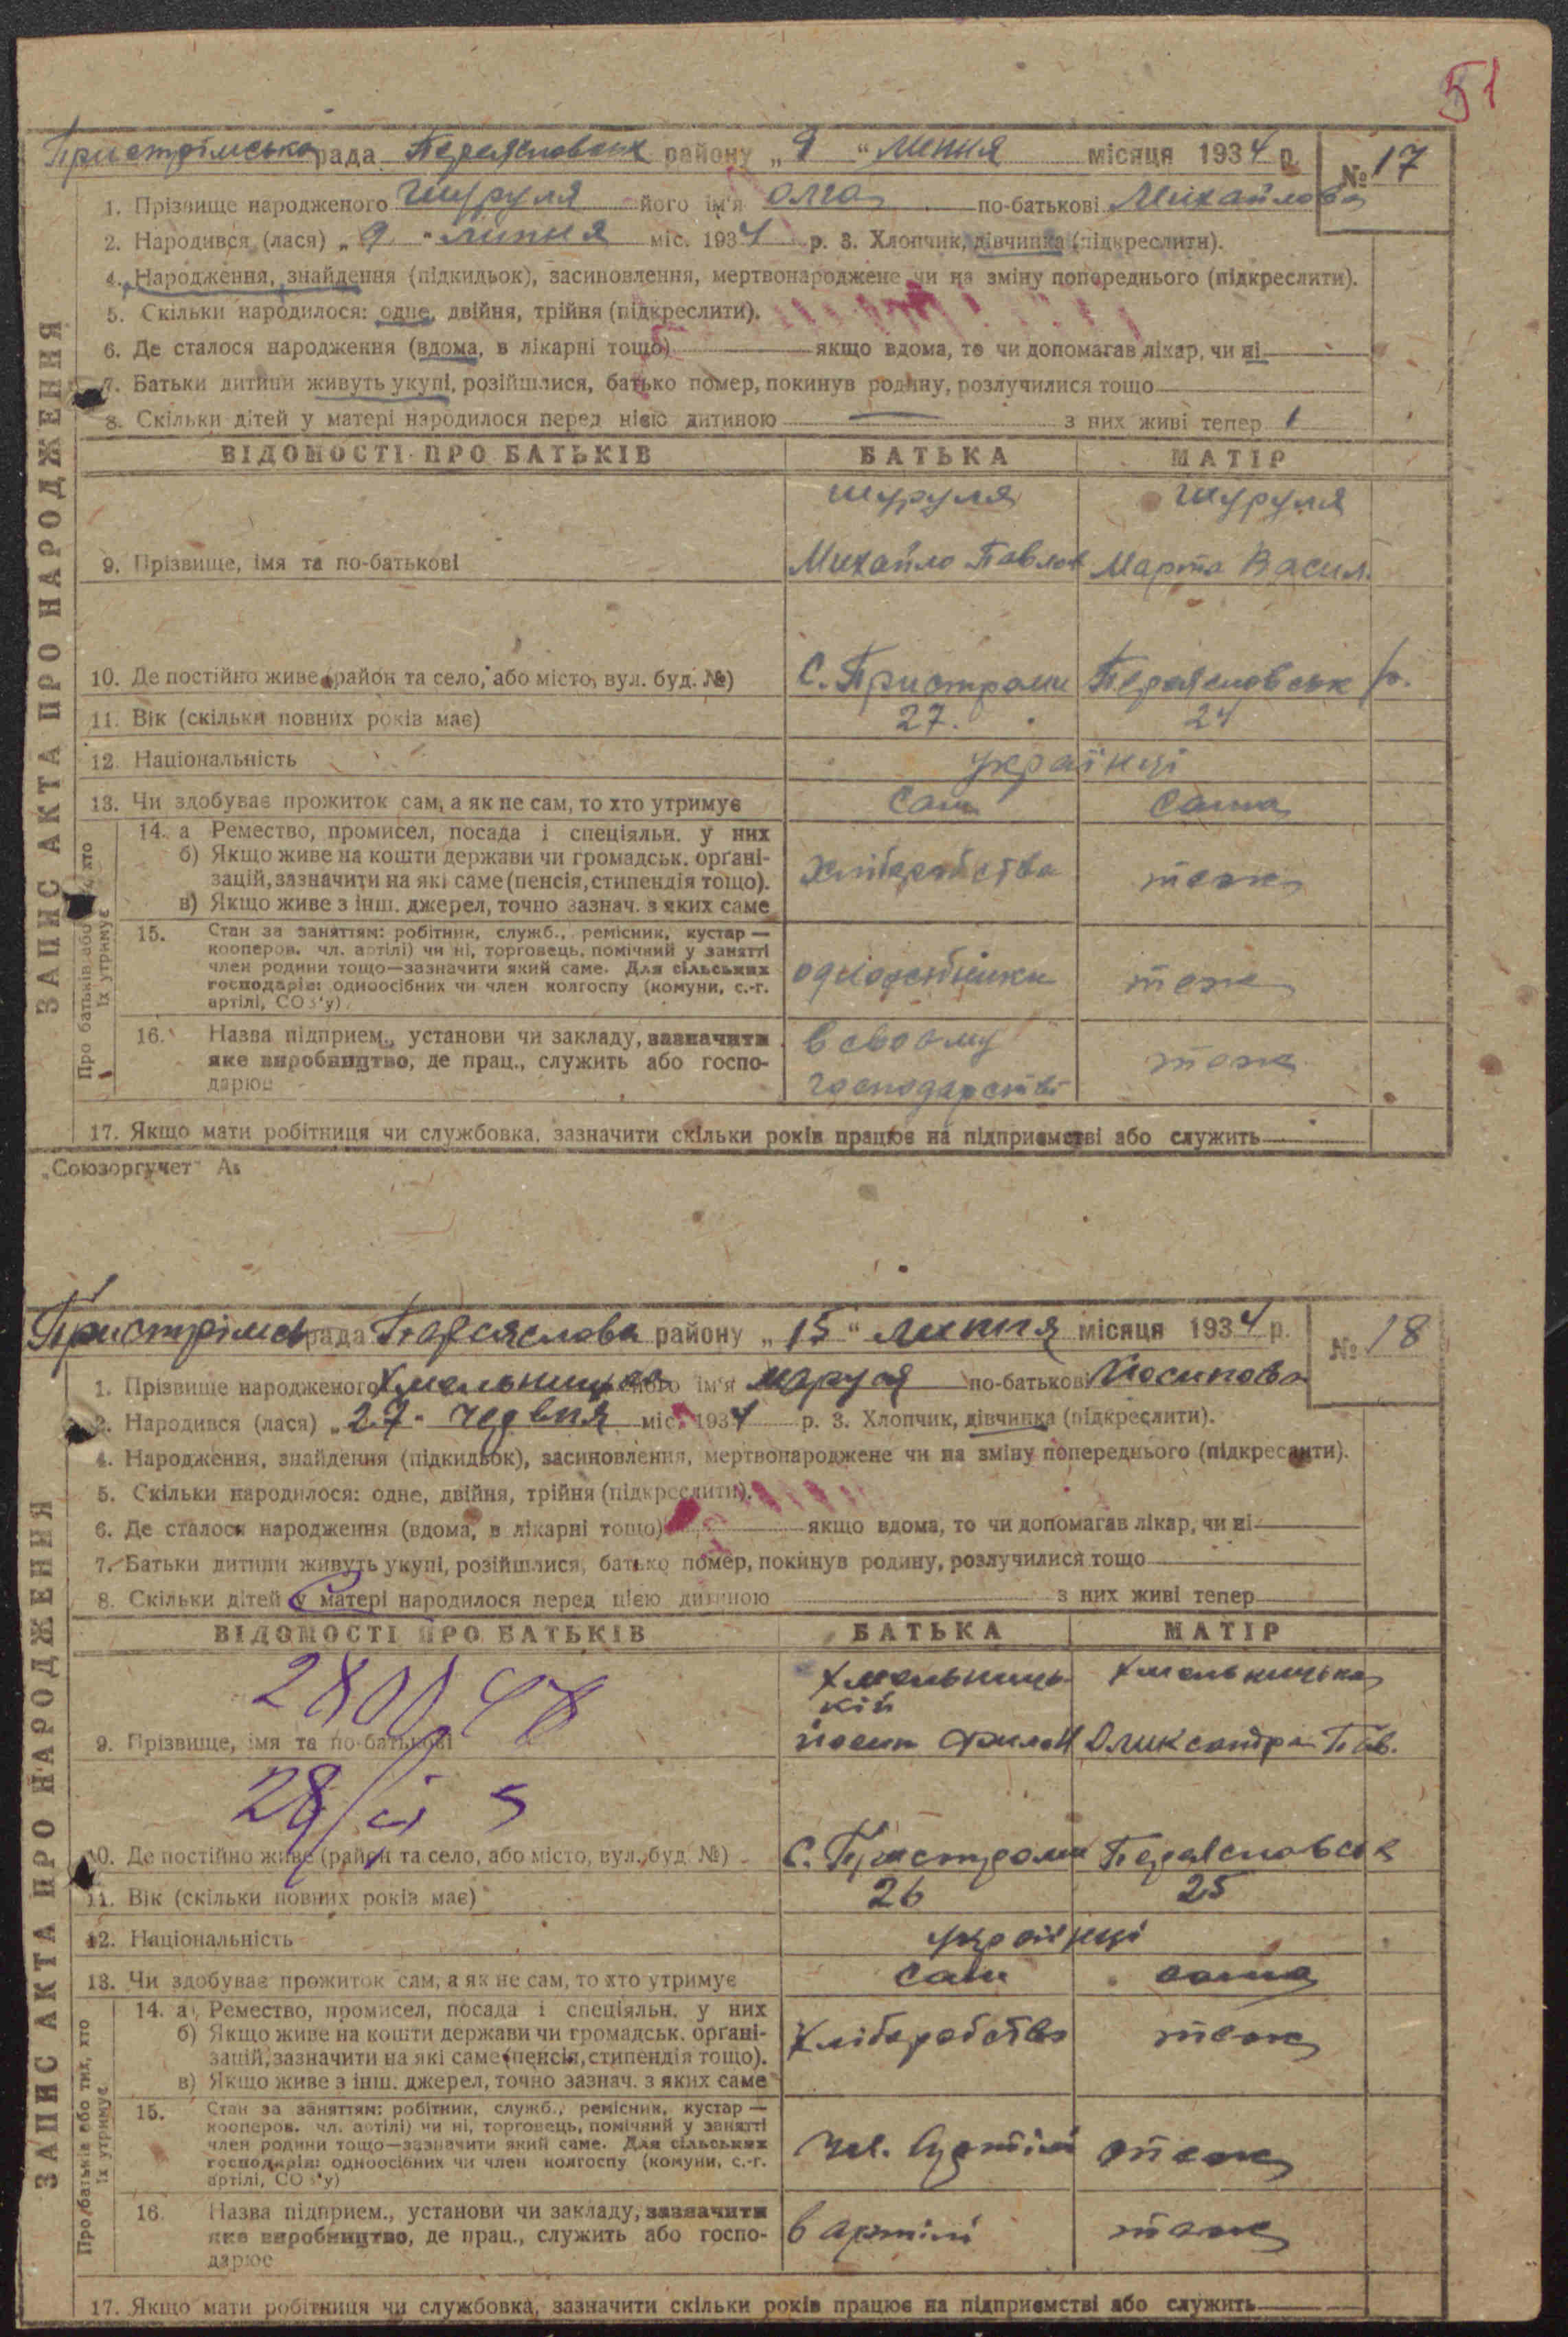 51
Пристрімська рада Переяславськ району „ 9 “ липня місяця 1934 р.
№ 17
1. Прізвище народженого Шуруля його ім'я Олга по-батькові Михайлова
2. Народився (лася) „ 9 “ липня міс. 1934 р. 3. Хлопчик, дівчинка (підкреслити).
4. Народження, знайдення (підкидьок), засиновлення, мертвонароджене чи на зміну попереднього (підкреслити).
5. Скільки народилося: одне, двійня, трійня (підкреслити).
6. Де сталося народження (вдома, в лікарні тощо) якщо вдома, то чи допомагав лікар, чи ні
7. Батьки дитини живуть укупі, розійшлися, батько помер, покинув родину, розлучилися тощо
8. Скільки дітей у матері народилося перед цією дитиною — з них живі тепер 1
ЗАПИС АКТА ПРО НАРОДЖЕННЯ
ВІДОМОСТІ ПРО БАТЬКІВ БАТЬКА МАТІР
Шуруля Шуруля
9. Прізвище, імя та по-батькові Михайло Павлов Марта Васил.
10. Де постійно живе (район та село, або місто, вул. буд. №) С. Пристроми Переясловськ р.
11. Вік (скільки повних років має) 27. 24
12. Національність українці
13. Чи здобуває прожиток сам, а як не сам, то хто утримує Сам Сама
Про батьків або тих, хто їх утримує
14. а Ремество, промисел, посада і спеціяльн. у них
б) Якщо живе на кошти держави чи громадськ. органі-
зацій, зазначити на які саме (пенсія, стипендія тощо). Хліборобства теж
в) Якщо живе з інш. джерел, точно зазнач. з яких саме
15. Стан за заняттям: робітник, служб., ремісник, кустар —
кооперов. чл. артілі) чи ні, торговець, помічний у занятті
член родини тощо—зазначити який саме. Для сільських
господарів: одноосібних чи член колгоспу (комуни, с.-г.
артілі, СОЗ'у) одноосібники теж
16. Назва підприєм., установи чи закладу, зазначити в своому
яке виробництво, де прац., служить або госпо- теж
дарює господарстві
17. Якщо мати робітниця чи службовка, зазначити скільки років працює на підприємстві або служить
„Союзоргучет“
Пристрімськ рада Переяслава району „ 15 “ липня місяця 1934 р.
№ 18
1. Прізвище народженого Хмельницька його ім'я Маруся по-батькові Йосипова
2. Народився (лася) „ 27 “ червня міс. 1934 р. 3. Хлопчик, дівчинка (підкреслити).
4. Народження, знайдення (підкидьок), засиновлення, мертвонароджене чи на зміну попереднього (підкреслити).
5. Скільки народилося: одне, двійня, трійня (підкреслити).
6. Де сталося народження (вдома, в лікарні тощо) якщо вдома, то чи допомагав лікар, чи ні
7. Батьки дитини живуть укупі, розійшлися, батько помер, покинув родину, розлучилися тощо
8. Скільки дітей у матері народилося перед цією дитиною з них живі тепер
ЗАПИС АКТА ПРО НАРОДЖЕННЯ
ВІДОМОСТІ ПРО БАТЬКІВ БАТЬКА МАТІР
Хмельниць- Хмельницька
кій
9. Прізвище, імя та по-батькові Йосип Филон Оликсандра Пав.
10. Де постійно живе (район та село, або місто, вул. буд. №) С. Пристроми Переясловськ
11. Вік (скільки повних років має) 26 25
12. Національність українці
13. Чи здобуває прожиток сам, а як не сам, то хто утримує Сам сама
Про батьків або тих, хто їх утримує
14. а) Ремество, промисел, посада і спеціяльн. у них
б) Якщо живе на кошти держави чи громадськ. органі- Хліборобство теж
зацій, зазначити на які саме (пенсія, стипендія тощо).
в) Якщо живе з інш. джерел, точно зазнач. з яких саме
15. Стан за заняттям: робітник, служб., ремісник, кустар —
кооперов. чл. артілі) чи ні, торговець, помічний у занятті
член родини тощо—зазначити який саме. Для сільських чл. Артілі теж
господарів: одноосібних чи член колгоспу (комуни, с.-г.
артілі, СОЗ'у)
16. Назва підприєм., установи чи закладу, зазначити
яке виробництво, де прац., служить або госпо- в артілі теж
дарює
17. Якщо мати робітниця чи службовка, зазначити скільки років працює на підприємстві або служить